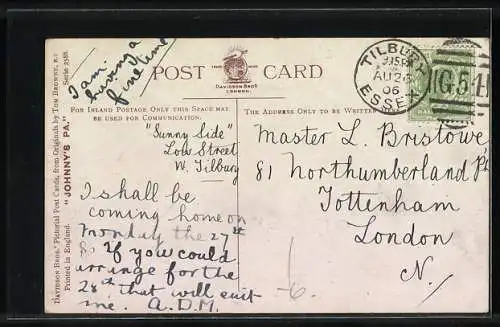 I am
having a
fine time
POST CARD
DAVIDSON BROS.
LONDON.
FOR INLAND POSTAGE ONLY THIS SPACE MAY
BE USED FOR COMMUNICATION.
THE ADDRESS ONLY TO BE WRITTEN
"Sunny Side"
Low Street
W. Tilbury
I shall be
coming home on
Monday the 27th
So if you could
arrange for the
28th that will suit
me. A.D.M.
TILBURY
AU 26
06
ESSEX
G.54
Master L. Bristowe,
81 Northumberland Pk
Tottenham
London
N.
DAVIDSON BROS.' Pictorial Post Cards, from Originals by TOM BROWNE, R.I
Printed in England. "JOHNNY'S PA." Serie 2588.